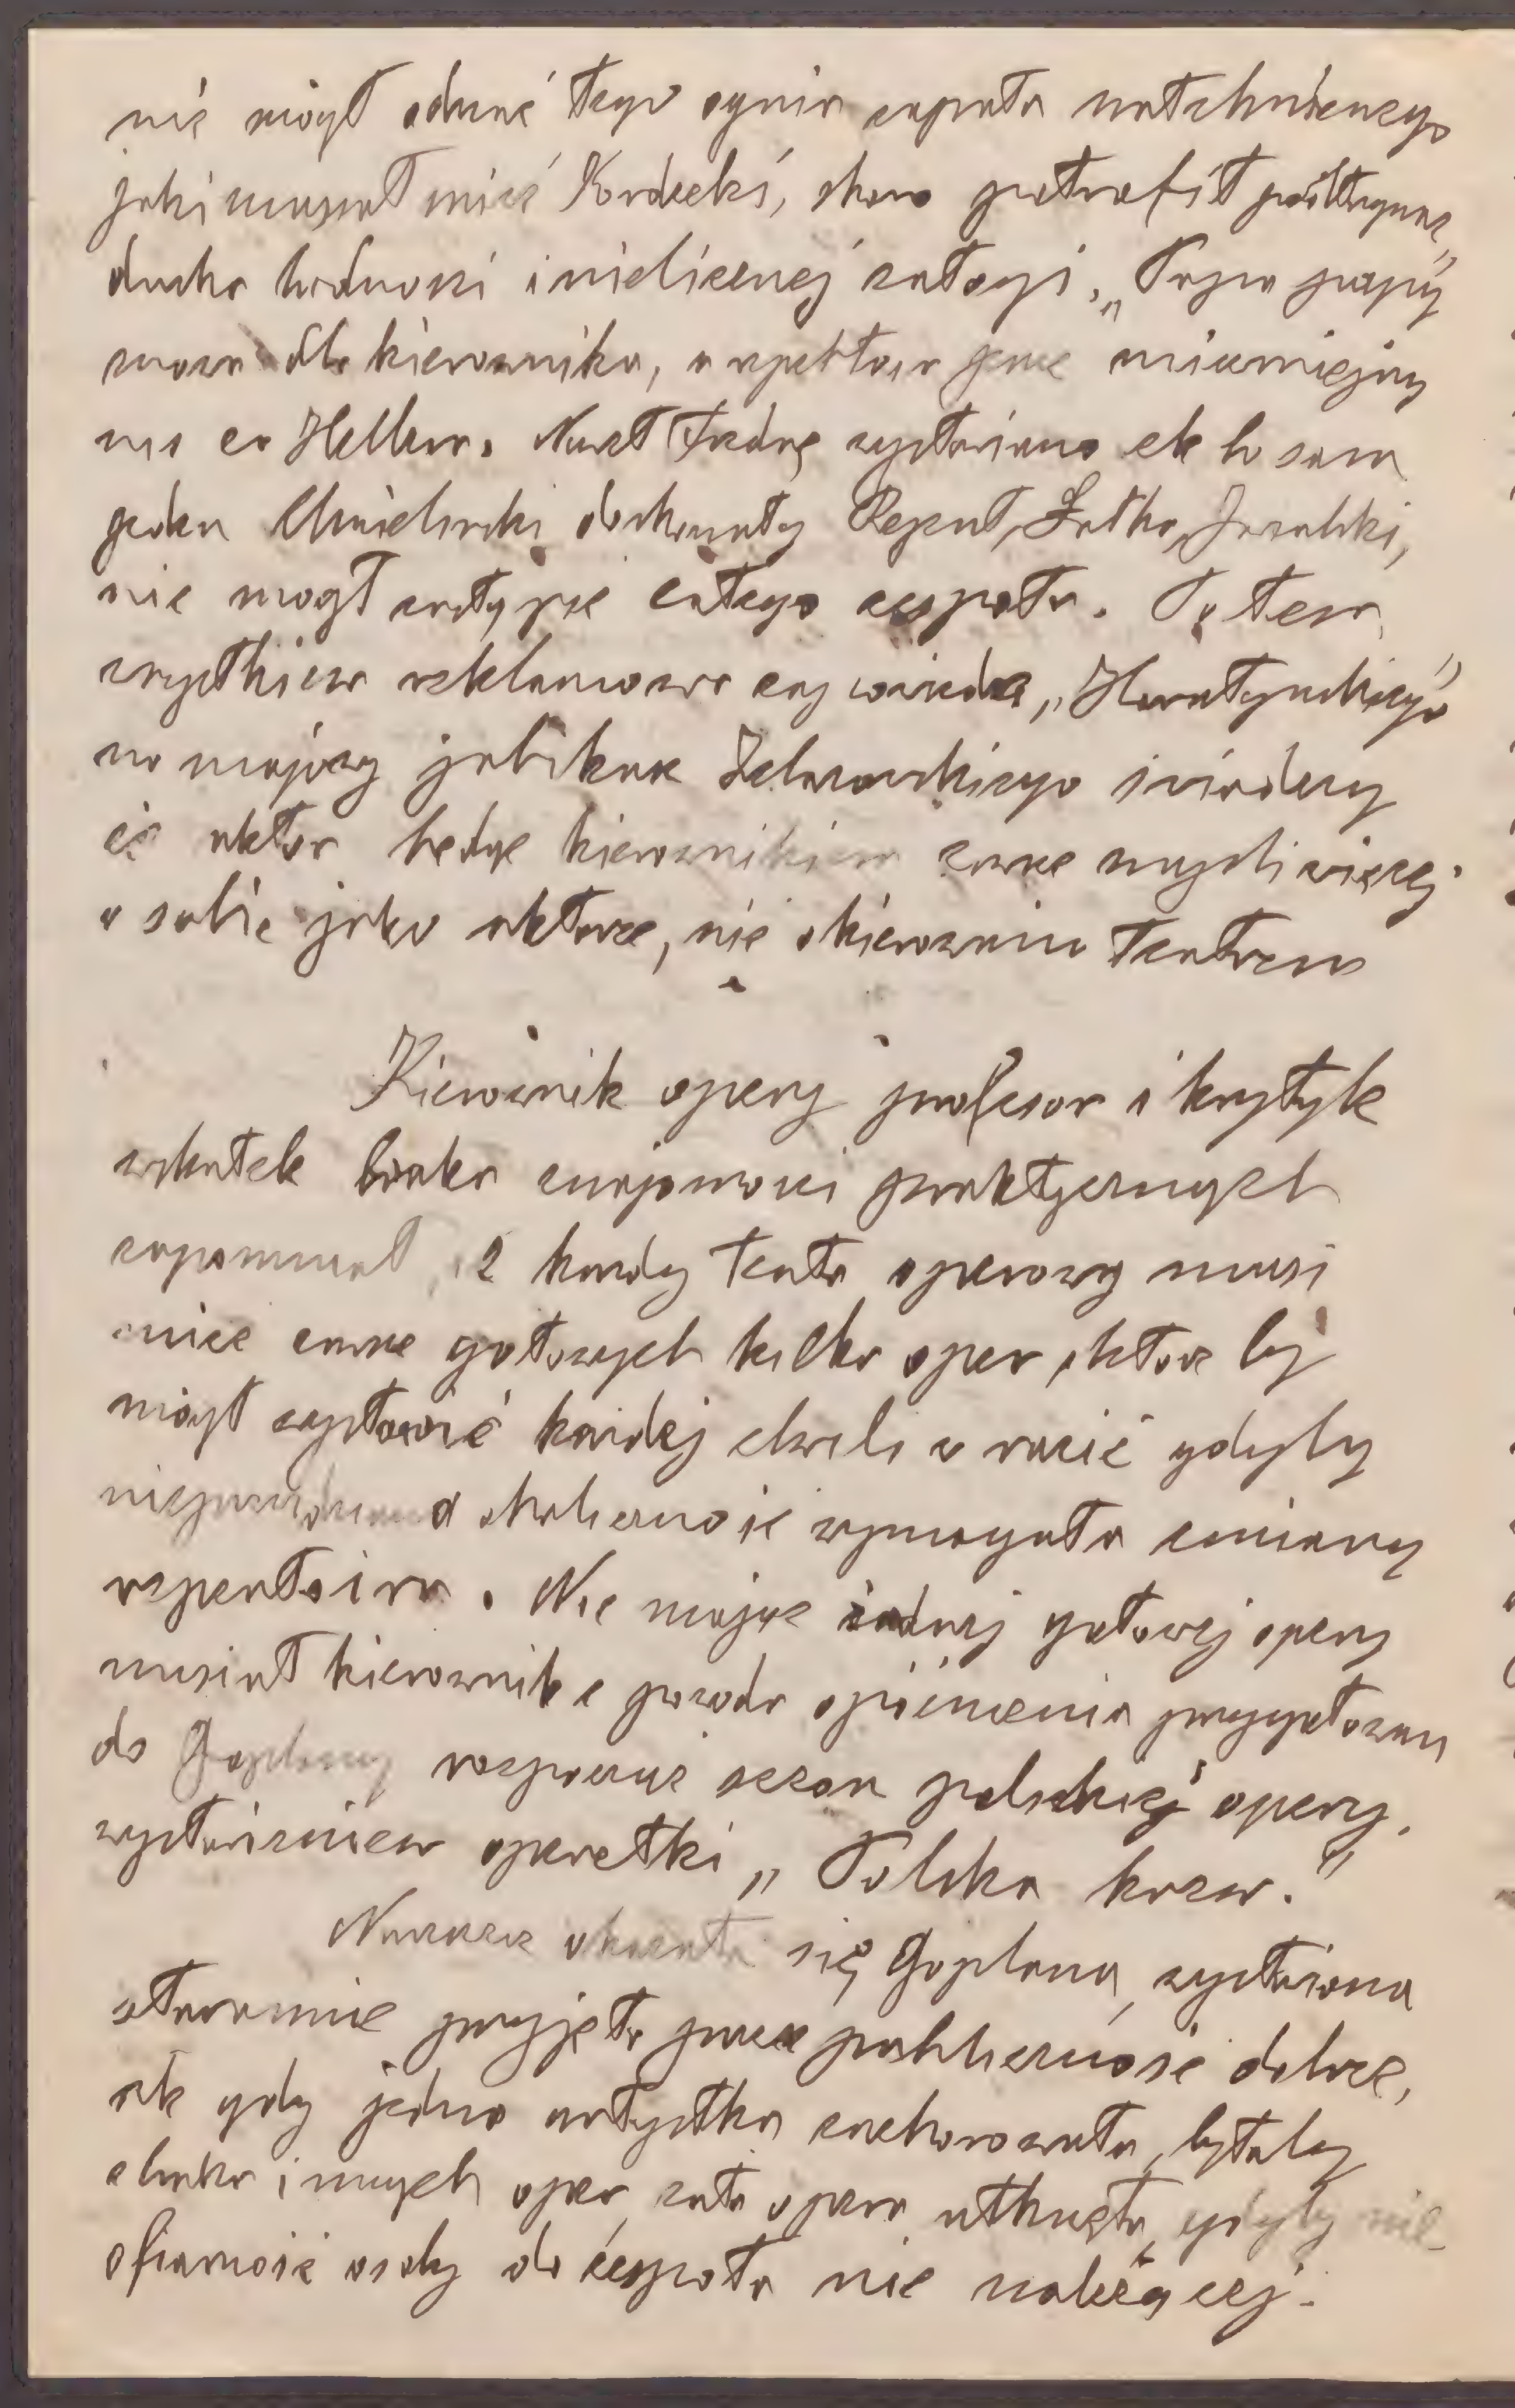 nie mógł oddać tego ognia zapału natchnionego
jaki musiał mieć Kordecki, skoro potrafił podtrzymać
ducha ludności i nielicznej załogi. „Trzpia
dla kierownika, a repertoar
Hellera. Nawet Fredrę wystawiano ale bo sam
jeden Chmielewski doskonały Rejent, Łatka, Jowialski,
nie mógł zastąpić całego zespołu. Po tem
wszystkiem reklamowa zapowiedź „Horsztyńskiego"
na mający jubileusz Żelazowskiego świadczy
iż aktor będąc kierownikiem zawsze myśli więcej
o sobie jako aktorze, niż o kierowaniu teatrem
Kierownik opery profesor i krytyk
wskutek braku znajomości praktycznych
zapomniał, iż każdy teatr operowy musi
mieć zawsze gotowych kilka oper, które by
mógł wystawić każdej chwili w razie gdyby
nieprzewidziana okoliczność wymagała zmiany
repertoiru. Nie mając żadnej gotowej opery
musiał kierownik z powodu opóźnienia przygotowań
do Goplany rozpocząć sezon polskiej opery,
wystawieniem operetki „Polska krew."
Nareszcie okazała się Goplana, wystawiona
starannie przyjęta przez publiczność dobrze,
ale gdy jedna artystka zachorowała, byłaby
z braku innych oper, cała opera utknęła, gdyby nie
ofiarność osoby do zespołu nie należącej.